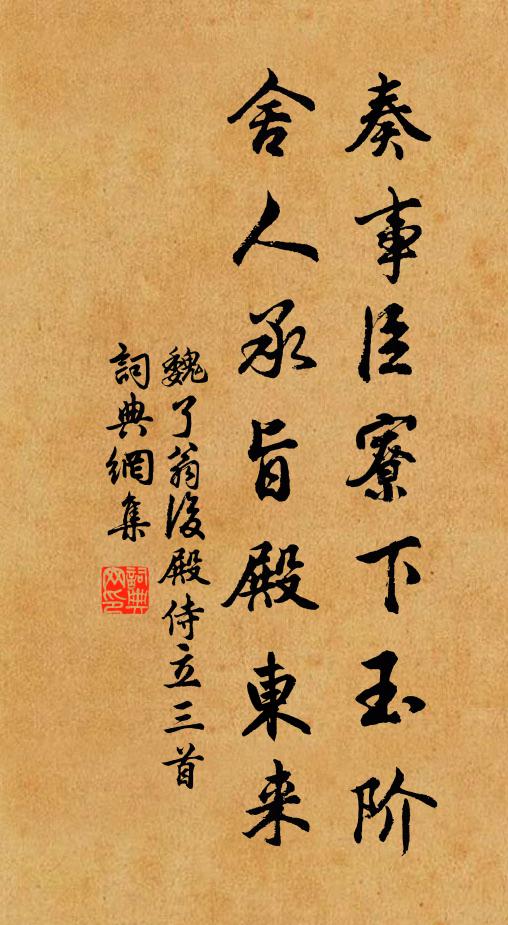 奏事臣寮下玉阶
舍人承旨殿東来
魏了翁後殿侍立三首
詞典網集
詞典网印